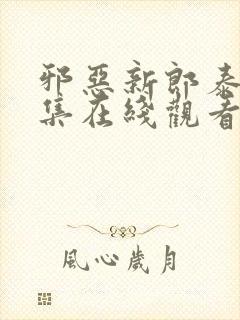 邪惡新郎泰
集在綫觀看
風心歲月